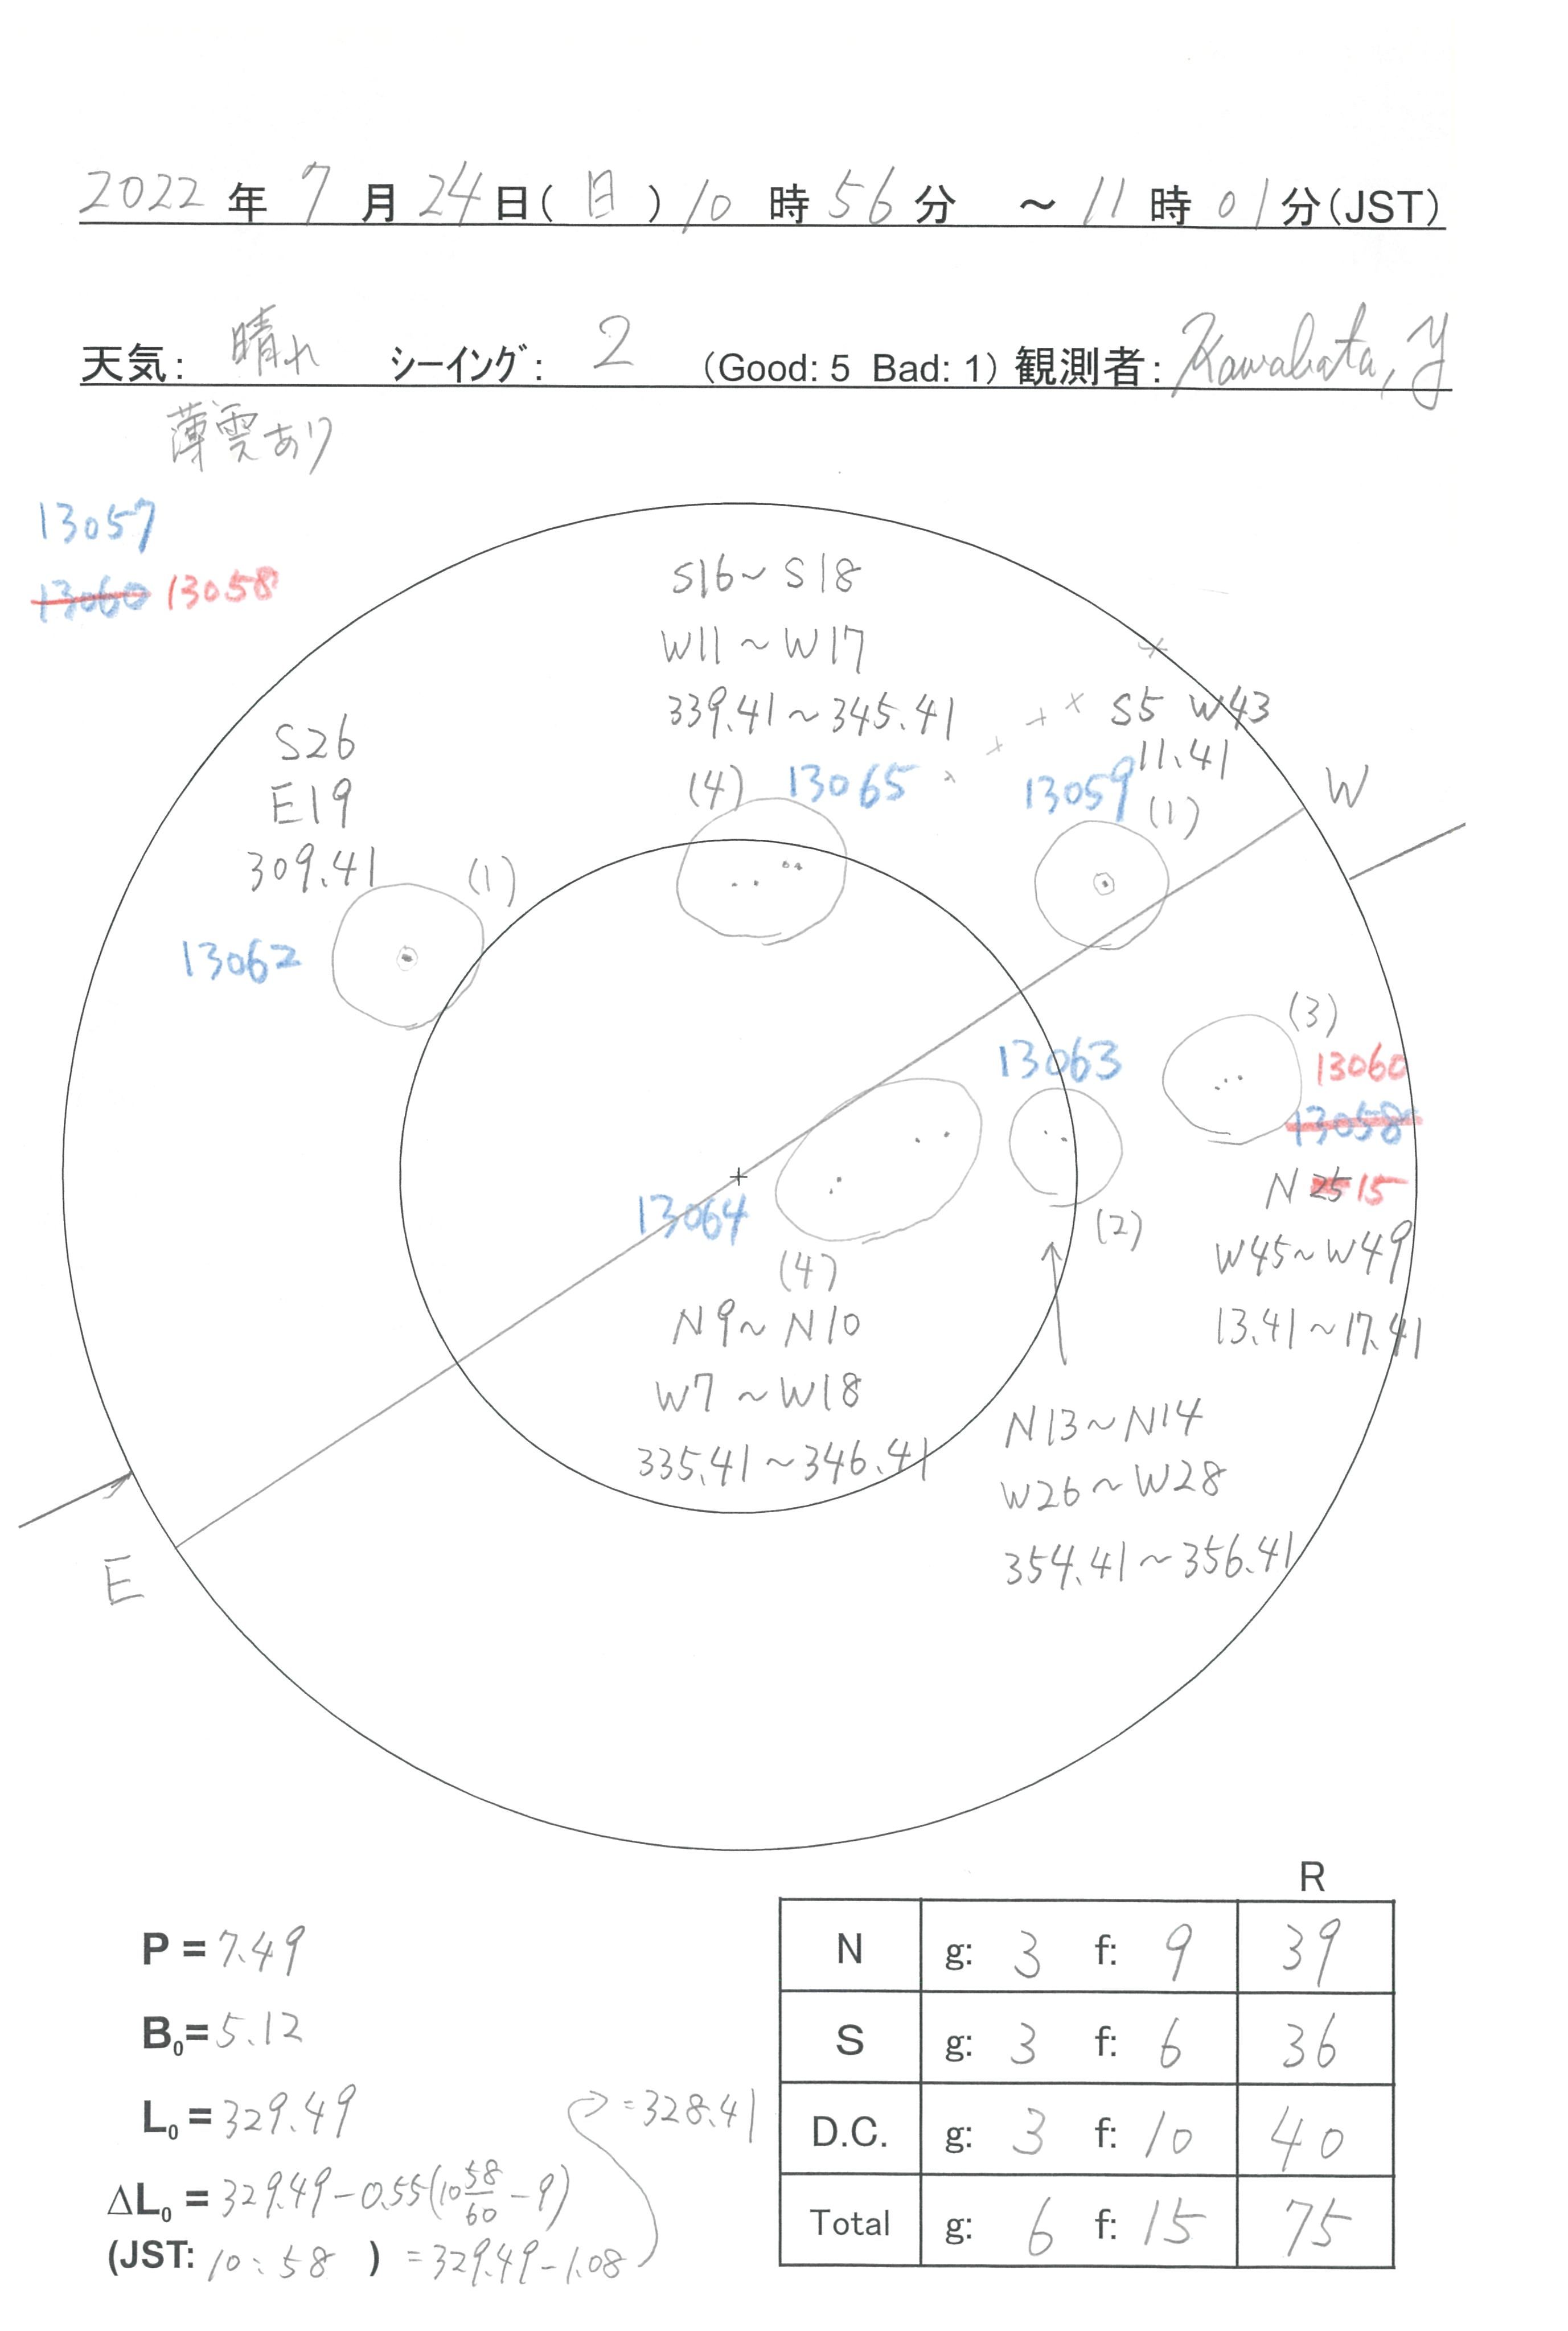 2022 年 7 月 24 日( 日 ) 10 時 56 分 ～ 11 時 01 分(JST)
天気: 晴れ シーイング: 2 (Good: 5 Bad: 1) 観測者: Kawabata, Y
薄雲あり
13057
13060 13058
S16～S18
W11～W17
339.41～345.41
(4) 13065
S5 W43
11.41
13059 (1)
W
S26
E19
309.41
(1)
13062
13063
(3)
13060
13058
N 25 15
W45～W49
13.41～17.41
13064
(4)
N9～N10
W7～W18
335.41～346.41
(2)
N13～N14
W26～W28
354.41～356.41
E
P = 7.49
B0= 5.12
L0 = 329.49
ΔL0 = 329.49-0.55(10 58/60 -9)
(JST: 10:58 ) = 329.49-1.08
=328.41
R
N g: 3 f: 9 39
S g: 3 f: 6 36
D.C. g: 3 f: 10 40
Total g: 6 f: 15 75